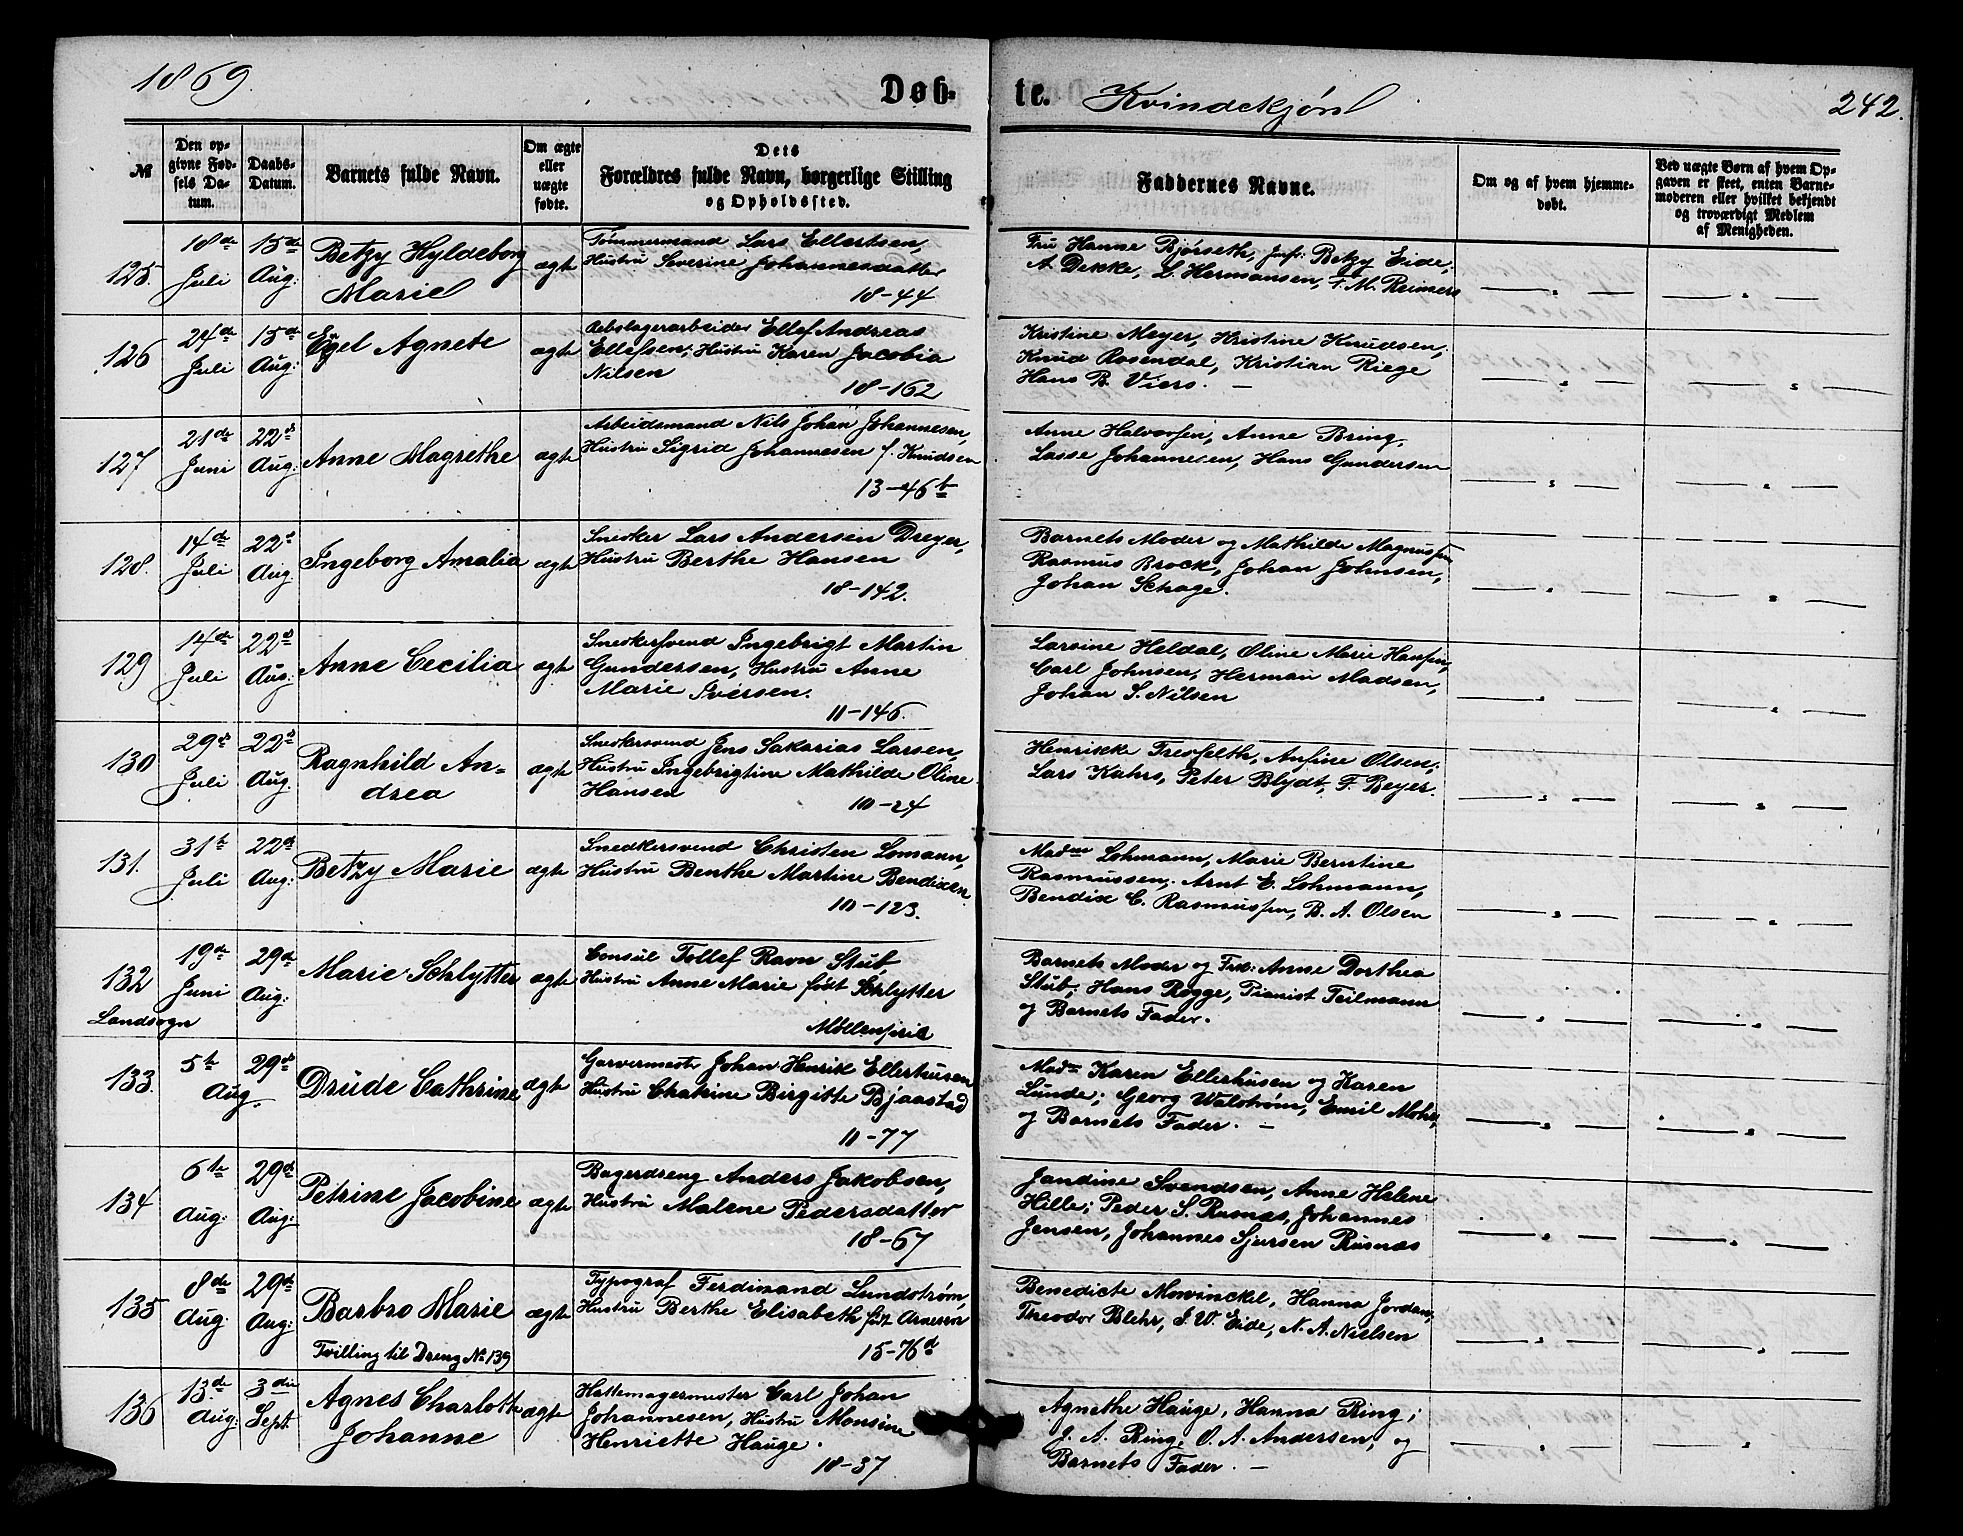 1869.
Døb-
te.
Kvindekjøn
242.
№
Den op-
givne Fød-
sels Da-
tum.
Daabs-
Datum.
Barnets fulde Navn.
Om ægte
eller
uægte
fødte.
Dets
Forældres fulde Navn, borgerlige Stilling
og Opholdssted.
Faddernes Navne.
Om og af hvem hjemme-
døbt.
Ved uægte Børn af hvem Op-
gaven er skeet, enten Barne-
moderen eller hvilket bekjendt
og troværdigt Medlem
af Menigheden.
125.
18de
Juli
15de
Aug:
Betzy Hyldeborg
Marie
ægte
Tømmermand Lars Ellertsen,
Hustru Severine Johannesdatter
18-44
Fru Hanne Bjørseth, Jnfr: Betzy Eide,
A Dekke, L. Hermansen, F. M. Reimers
126
24de
Juli
15de
Aug:
Engel Agnete
ægte
Ellef Andreas
Ellefsen, Hustru Karen Jacobia
Nilsen
18-162
Kristine Meyer, Kristine Knudsen,
Knud Rosendal, Kristian Riege
Hans B. Viers. —
127
21de
Juni
22d
Aug:
Anne Magrethe
ægte
Arbeidsmand Nils Johan Johannesen,
Hustru Sigrid Johannesen f. Knudsen
13-46b
Anne Halvorsen, Anne Bring,
Lasse Johannesen, Hans Gundersen
128.
14de
Juli
22d
Aug.
Ingeborg Amalia
ægte
Snedker Lars Andersen Dreyer,
Hustru Berthe Hansen
18-142.
Barnets Moder og Mathilde Magnussen
Rasmus Brock, Johan Johnsen,
Johan Schage.
129
14de
Juli
22d
Aug:
Anne Cecilia
ægte
Snedkersvend Ingebrigt Martin
Gundersen, Hustru Anne
Marie Iversen.
11-146.
Larsine Heldal, Oline Marie Hansen,
Carl Johnsen, Herman Madsen,
Johan S. Nilsen
130
29d
Juli
22d
Aug.
Ragnhild An-
drea
ægte
Snedkersvend Jens Sakarias Larsen,
Hustru Ingebrigtine Mathilde Oline
Hansen
10-24
Henrikke Tresselth, Ansine Olsen,
Lars Kahrs, Peter Blydt, F. Beyer.
131.
31t
Juli
22d
Aug:
Betzy Marie
ægte
Snedkersvend Christen Lomann,
Hustru Benthe Martine Bendixen
10-123.
Madm Lohmann, Marie Berntine
Rasmussen, Arnt E. Lohmann,
Bendix C. Rasmussen, B. A. Olsen
132
Landsogn
19de
Juni
29d
Aug:
Marie Schlytter
ægte
Consul Tollef Ravn Stub,
Hustru Anne Marie født Schlytter
Møllenpris
Barnets Moder og Frk: Anne Dorthea
Stub; Hans Rogge, Pianist Teilmann
og Barnets Fader.
133.
5te
Aug.
29d
Drude Cathrine
ægte
Garvermester Johan Henrik Ellerhusen
Hustru Chatrine Birgitte Bjaastad
11-77
Madm Karen Ellerhusen og Karen
Lunde; Georg Walstrøm, Emil Mohr,
og Barnets Fader. —
134
6te
Aug:
29d
Aug:
Petrine Jacobine
ægte
Bagerdreng Anders Jakobsen,
Hustru Malene Pedersdatter
18-67
Jandine Svendsen, Anne Helene
Hille; Peder S. Rusnæs, Johannes
Jensen, Johannes Sjursen Rusnæs
135
8de
Aug.
29d
Aug:
Barbro Marie
Tvilling til Dreng No 139
ægte
Typograf Ferdinand Lundstrøm,
Hustru Berthe Elisabeth født Arnesen
15-76d
Benedicte Mowinckel, Hanna Jordan,
Theodor Blehr, J. W. Eide, N. A. Nielsen
136
13de
Aug:
3die
Sept.
Agnes Charlotte
Johanne
ægte
Hattemagermester Carl Johan
Johannesen, Hustru Monsine
Henriette Hauge.
18-37
Agnethe Hauge, Hanna Ring;
J. A. Ring, O. A. Andersen, og
Barnets Fader. —